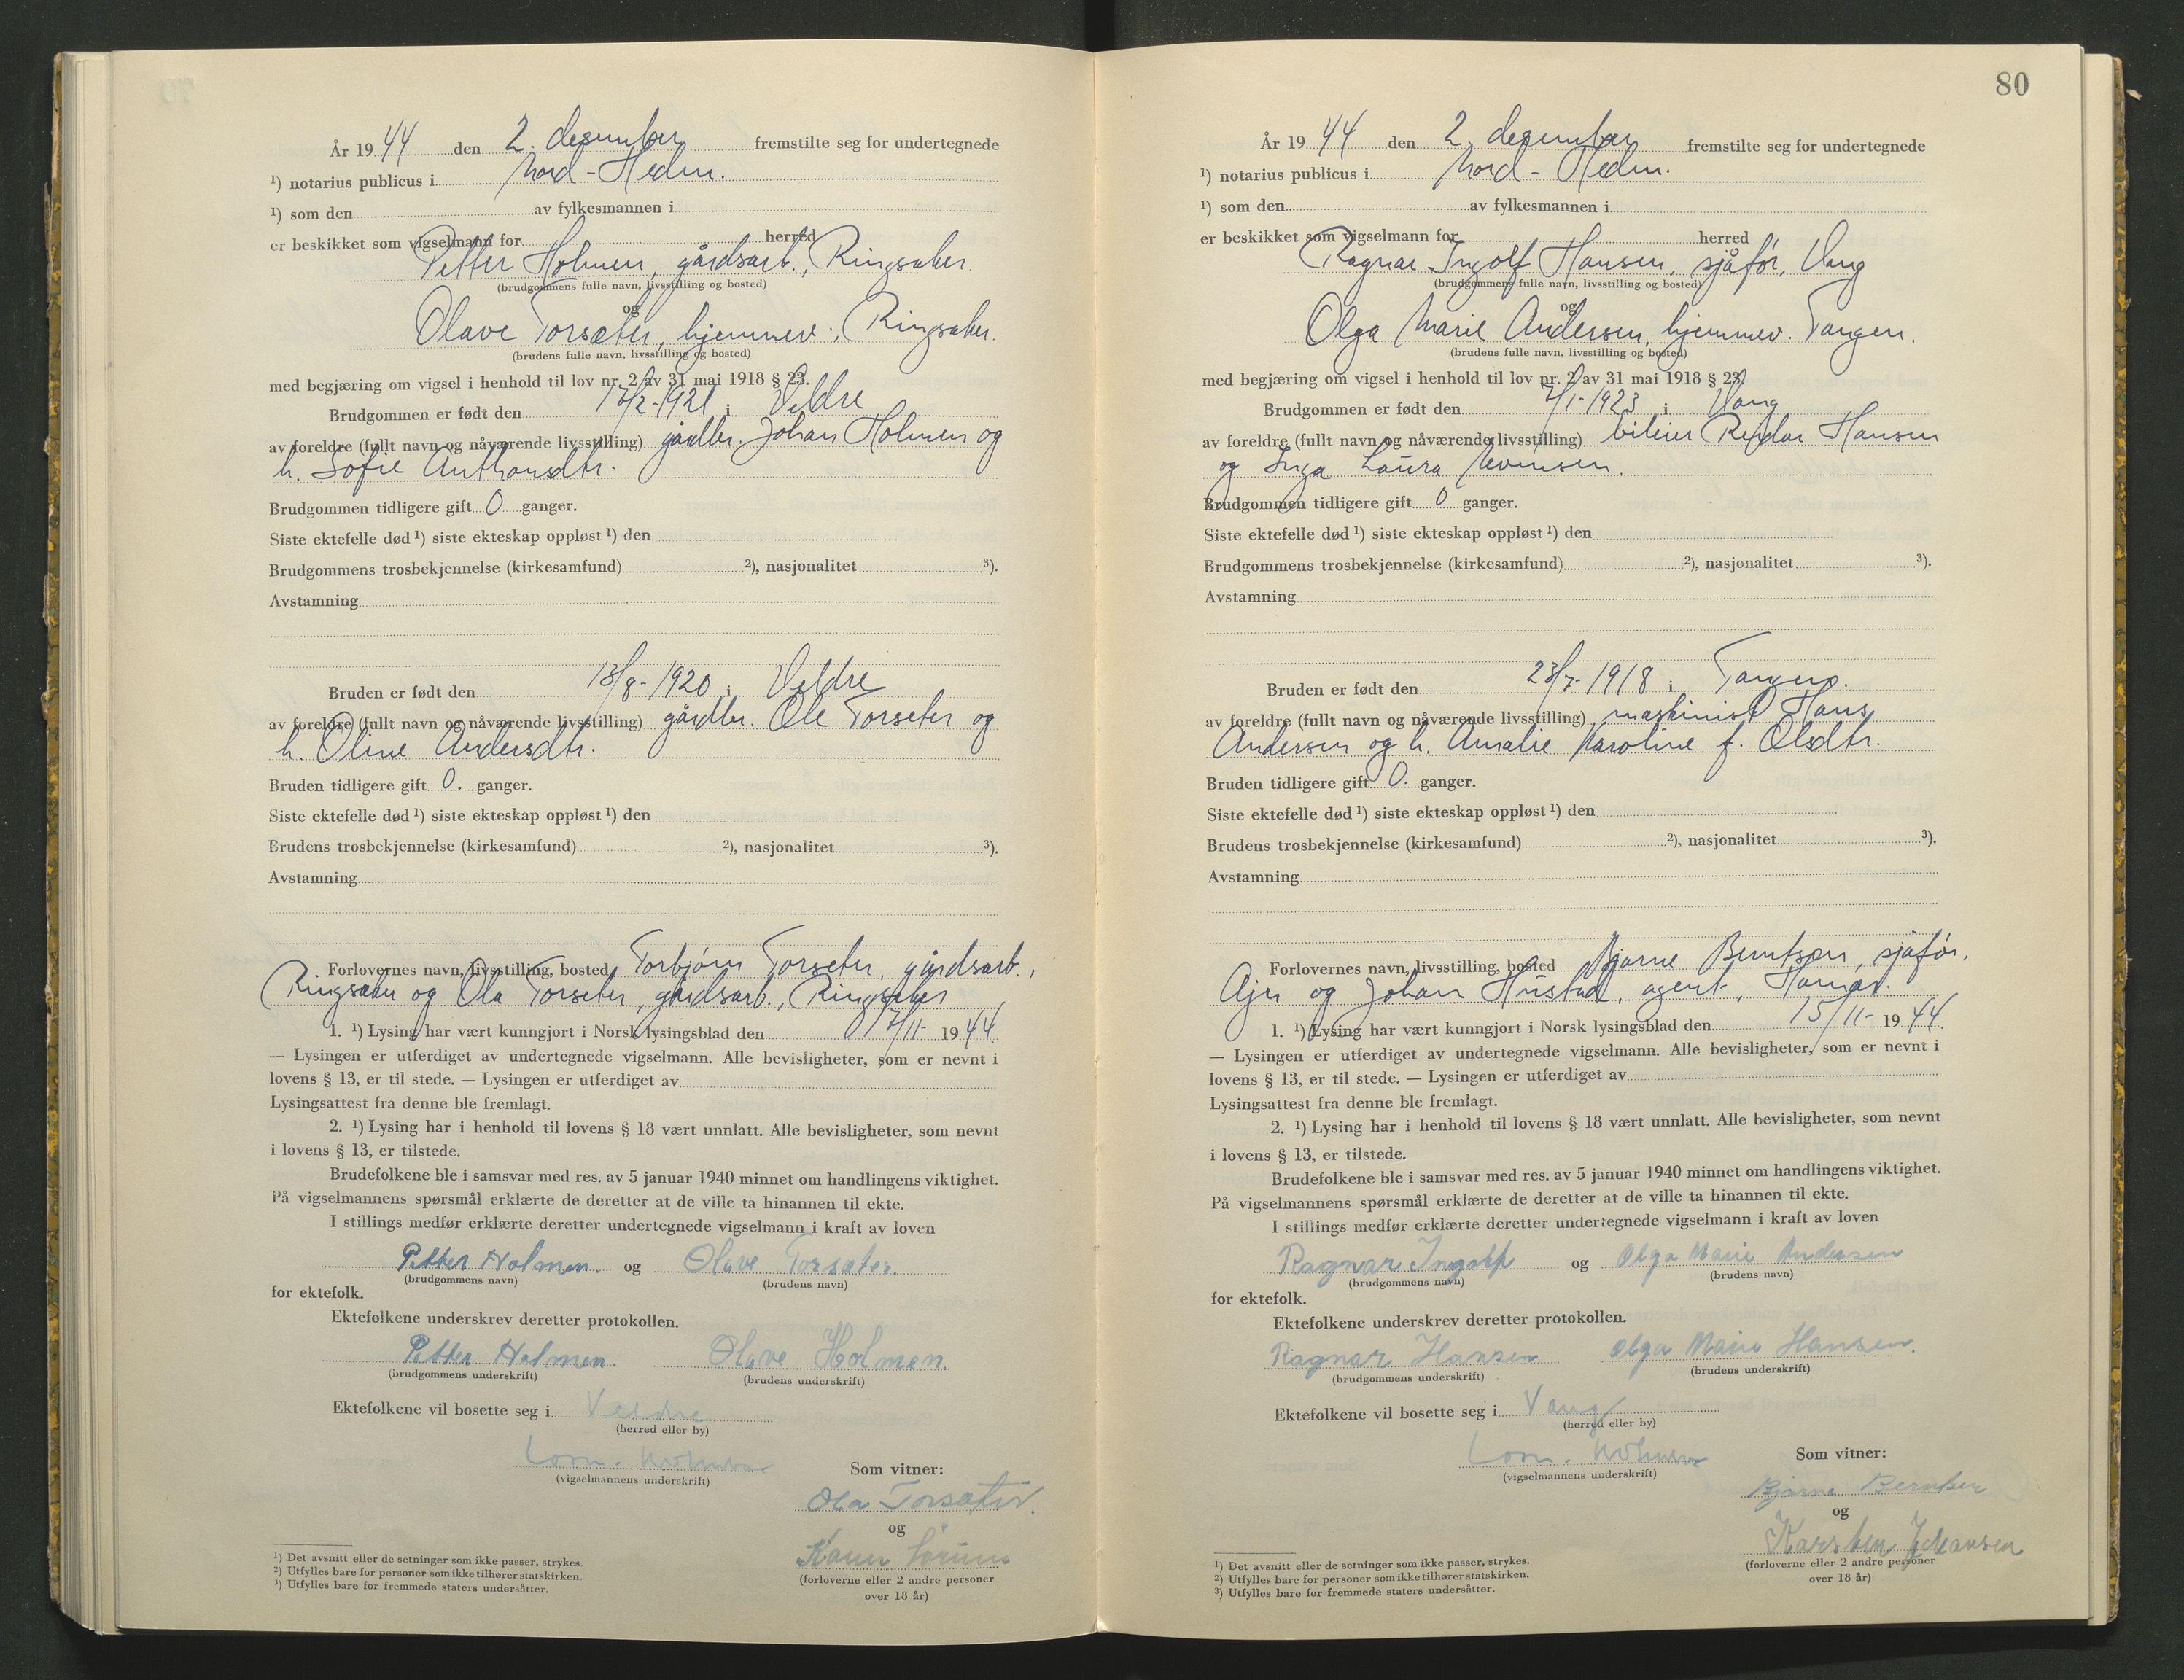 År 19 44 den 2. desember fremstilte seg for undertegnede
¹) notarius publicus i Nord-Hedm.
¹) som den av fylkesmannen i
er beskikket som vigselmann for herred
Petter Holmen, gårdsarb., Ringsaker.
(brudgommens fulle navn, livsstilling og bosted)
og
Olave Torsæter, hjemmev., Ringsaker.
(brudens fulle navn, livsstilling og bosted)
med begjæring om vigsel i henhold til lov nr. 2 av 31 mai 1918 § 23.
Brudgommen er født den /2-1921 i Veldre
av foreldre (fullt navn og nåværende livsstilling) gårdbr. Johan Holmen og
h. Sofie Anthonsdtr.
Brudgommen tidligere gift 0 ganger.
Siste ektefelle død ¹) siste ekteskap oppløst ¹) den
Brudgommens trosbekjennelse (kirkesamfund) ²), nasjonalitet ³).
Avstamning
Bruden er født den 13/8-1920 i Veldre
av foreldre (fullt navn og nåværende livsstilling) gårdbr. Ole Torseter og
h. Oline Andersdtr.
Bruden tidligere gift 0. ganger.
Siste ektefelle død ¹) siste ekteskap oppløst ¹) den
Brudens trosbekjennelse (kirkesamfund) ²), nasjonalitet ³).
Avstamning
Forlovernes navn, livsstilling, bosted Torbjørn Torseter, gårdsarb.,
Ringsaker og Ola Torseter, gårdsarb., Ringsaker
1. ¹) Lysing har vært kunngjort i Norsk lysingsblad den 17/11- 19 44.
— Lysingen er utferdiget av undertegnede vigselmann. Alle bevisligheter, som er nevnt i
lovens § 13, er til stede. — Lysingen er utferdiget av
Lysingsattest fra denne ble fremlagt.
2. ¹) Lysing har i henhold til lovens § 18 vært unnlatt. Alle bevisligheter, som nevnt
i lovens § 13, er tilstede.
Brudefolkene ble i samsvar med res. av 5 januar 1940 minnet om handlingens viktighet.
På vigselmannens spørsmål erklærte de deretter at de ville ta hinannen til ekte.
I stillings medfør erklærte deretter undertegnede vigselmann i kraft av loven
Petter Holmen. og Olave Torsæter.
(brudgommens navn) (brudens navn)
for ektefolk.
Ektefolkene underskrev deretter protokollen.
Petter Holmen. Olave Holmen.
(brudgommens underskrift) (brudens underskrift)
Ektefolkene vil bosette seg i Veldre
(herred eller by)
(vigselmannens underskrift)
Som vitner:
Ola Torsæter.
og
(forloverne eller 2 andre personer
over 18 år)
¹) Det avsnitt eller de setninger som ikke passer, strykes.
²) Utfylles bare for personer som ikke tilhører statskirken.
³) Utfylles bare for fremmede staters undersåtter.
80
År 19 44 den 2. desember fremstilte seg for undertegnede
¹) notarius publicus i Nord-Hedm.
¹) som den av fylkesmannen i
er beskikket som vigselmann for herred
Ragnar Ingolf Hansen, sjåfør, Vang
(brudgommens fulle navn, livsstilling og bosted)
og
Olga Marie Andersen, hjemmev. Tangen.
(brudens fulle navn, livsstilling og bosted)
med begjæring om vigsel i henhold til lov nr. 2 av 31 mai 1918 § 23.
Brudgommen er født den /1-1923 i Vang
av foreldre (fullt navn og nåværende livsstilling) bileier Reidar Hansen
og Inga Laura
Brudgommen tidligere gift 0 ganger.
Siste ektefelle død ¹) siste ekteskap oppløst ¹) den
Brudgommens trosbekjennelse (kirkesamfund) ²), nasjonalitet ³).
Avstamning
Bruden er født den 23/7-1918 i Tangen.
av foreldre (fullt navn og nåværende livsstilling) maskinist Hans
Andersen og h. Amalie Karoline f. Olsdtr.
Bruden tidligere gift 0. ganger.
Siste ektefelle død ¹) siste ekteskap oppløst ¹) den
Brudens trosbekjennelse (kirkesamfund) ²), nasjonalitet ³).
Avstamning
Forlovernes navn, livsstilling, bosted Bjarne Berntsen, sjåfør,
Ajer og Johan Hustad, agent, Hamar.
1. ¹) Lysing har vært kunngjort i Norsk lysingsblad den 15/11- 19 44.
— Lysingen er utferdiget av undertegnede vigselmann. Alle bevisligheter, som er nevnt i
lovens § 13, er til stede. — Lysingen er utferdiget av
Lysingsattest fra denne ble fremlagt.
2. ¹) Lysing har i henhold til lovens § 18 vært unnlatt. Alle bevisligheter, som nevnt
i lovens § 13, er tilstede.
Brudefolkene ble i samsvar med res. av 5 januar 1940 minnet om handlingens viktighet.
På vigselmannens spørsmål erklærte de deretter at de ville ta hinannen til ekte.
I stillings medfør erklærte deretter undertegnede vigselmann i kraft av loven
Ragnar Ingolf og Olga Marie Andersen
(brudgommens navn) (brudens navn)
for ektefolk.
Ektefolkene underskrev deretter protokollen.
Ragnar Hansen Olga Marie Hansen.
(brudgommens underskrift) (brudens underskrift)
Ektefolkene vil bosette seg i Vang
(herred eller by)
(vigselmannens underskrift)
Som vitner:
Bjarne Berntsen
og
Karsten Johansen
(forloverne eller 2 andre personer
over 18 år)
¹) Det avsnitt eller de setninger som ikke passer, strykes.
²) Utfylles bare for personer som ikke tilhører statskirken.
³) Utfylles bare for fremmede staters undersåtter.